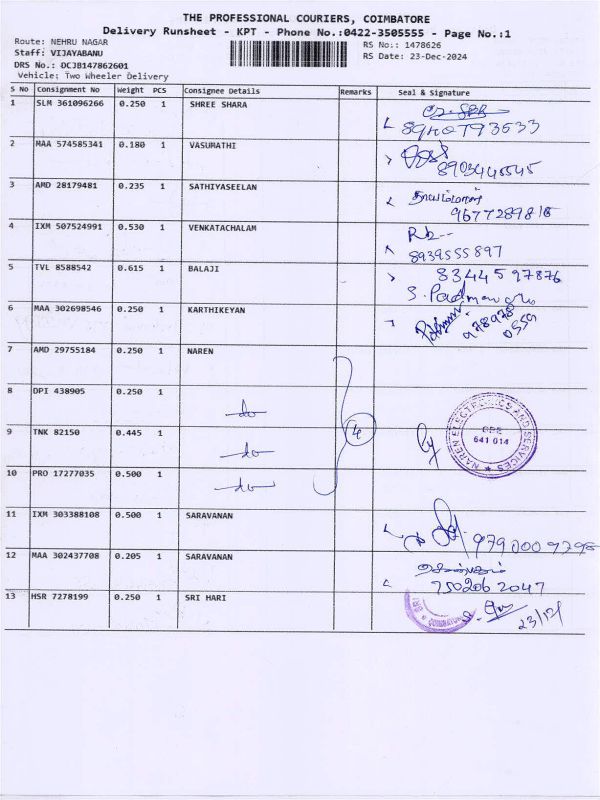 THE PROFESSIONAL COURIERS, COIMBATORE
Delivery Runsheet - KPT - Phone No.:0422-3505555 - Page No.:1
Route: NEHRU NAGAR RS No.: 1478626
Staff: VIJAYABANU RS Date: 23-Dec-2024
DRS No.: DCJB147862601
Vehicle: Two Wheeler Delivery
S No Consignment No Weight PCS Consignee Details Remarks Seal & Signature
1 SLM 361096266 0.250 1 SHREE SHARA
2 MAA 574585341 0.180 1 VASUMATHI
3 AMD 28179481 0.235 1 SATHIYASEELAN
9677289818
4 IXM 507524991 0.530 1 VENKATACHALAM
8939555897
5 TVL 8588542 0.615 1 BALAJI 8344597876
6 MAA 302698546 0.250 1 KARTHIKEYAN
7 AMD 29755184 0.250 1 NAREN
8 DPI 438905 0.250 1 do
9 TNK 82150 0.445 1 do
10 PRO 17277035 0.500 1 do
4
NAREN ELECTRONICS AND SERVICES
CBE
641 014
11 IXM 303388108 0.500 1 SARAVANAN
9790009798
12 MAA 302437708 0.205 1 SARAVANAN
7502062047
13 HSR 7278199 0.250 1 SRI HARI
23/12/